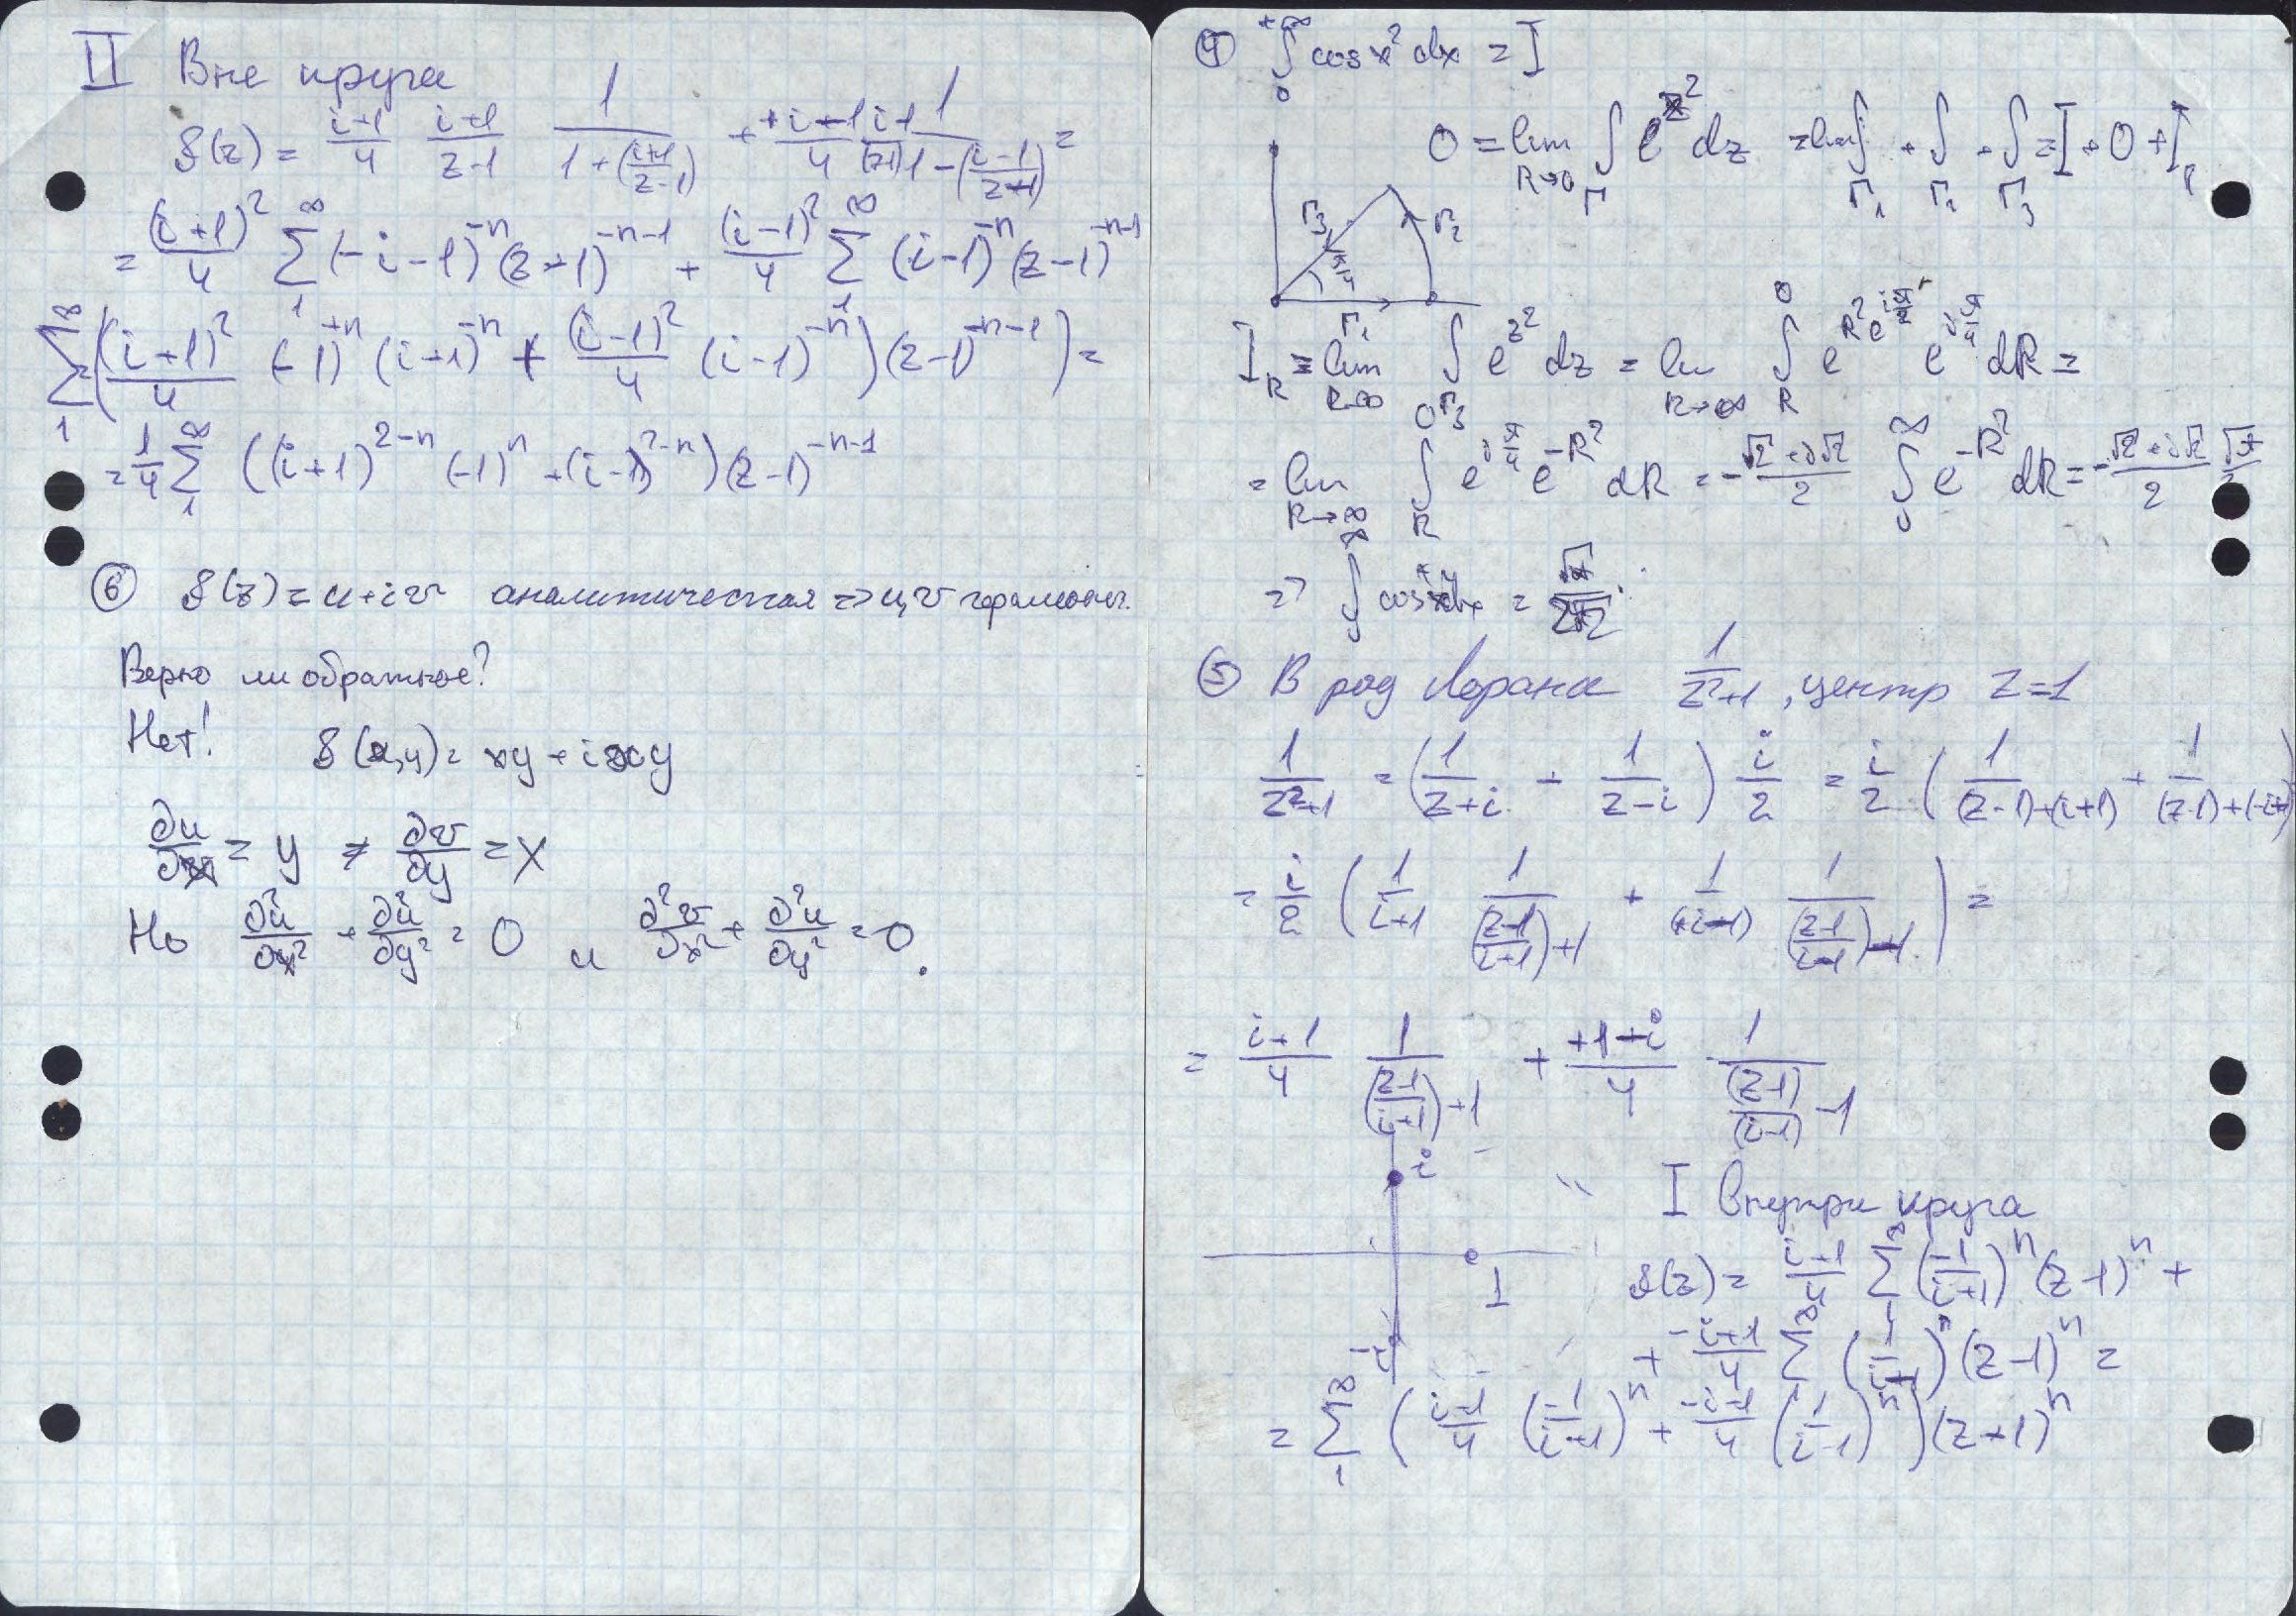 II Вне круга
f(z) = (i+1)/4 (i+1)/(z-1) 1/(1+((i+1)/(z-1))) + (+i-1)/4 (i-1)/(z-1) 1/(1-((i-1)/(z-1))) =
= (i+1)²/4 ∑₁^∞ (-i-1)^{-n} (z-1)^{-n-1} + (i-1)²/4 ∑₁^∞ (i-1)^{-n} (z-1)^{-n-1}
∑₁^∞ ((i+1)²/4 (-1)^{+n} (i+1)^{-n} + (i-1)²/4 (i-1)^{-n})(z-1)^{-n-1}) =
= 1/4 ∑₁^∞ ((i+1)^{2-n} (-1)^n + (i-1)^{2-n})(z-1)^{-n-1}
⑥ f(z) = u+iv аналитическая => u,v гармонич.
Верно ли обратное?
Нет! f(x,y) = xy + ixy
∂u/∂x = y ≠ ∂v/∂y = x
Но ∂²u/∂x² + ∂²u/∂y² = 0 и ∂²v/∂x² + ∂²u/∂y² = 0.
④ ∫₀^{+∞} cos x² dx = I
0 = lim_{R→0} ∫_Γ e^{z²} dz = lim ∫_{Γ₁} + ∫_{Γ₂} + ∫_{Γ₃} = I + 0 + I_R
Γ₃ Γ₂
π/4
Γ₁
I_R = lim_{R→∞} ∫_{Γ₃} e^{z²} dz = lim_{R→∞} ∫_R^0 e^{R² e^{iπ/2}} e^{iπ/4} dR =
= lim_{R→∞} ∫_R^0 e^{iπ/4} e^{-R²} dR = -(√2+i√2)/2 ∫₀^∞ e^{-R²} dR = -(√2+i√2)/2 √π/2
=> ∫^∞ cos x² dx = √π/(2√2).
⑤ В ряд Лорана 1/(z²+1), центр z=1
1/(z²+1) = (1/(z+i) - 1/(z-i)) i/2 = i/2 (1/((z-1)+(i+1)) + 1/((z-1)+(-i+1))
= i/2 (1/(i+1) 1/(((z-1)/(i+1))+1) + 1/(+i-1) 1/(((z-1)/(i-1))-1)) =
= (i+1)/4 1/(((z-1)/(i+1))+1) + (+1-i)/4 1/(((z-1)/(i-1))-1)
i
1
-i
I Внутри круга
f(z) = (i+1)/4 ∑₁^∞ (-1/(i+1))^n (z-1)^n +
+ (-i+1)/4 ∑^∞ (1/(i-1))^n (z-1)^n =
= ∑₁^∞ ((i+1)/4 (-1/(i+1))^n + (-i+1)/4 (1/(i-1))^n)(z+1)^n